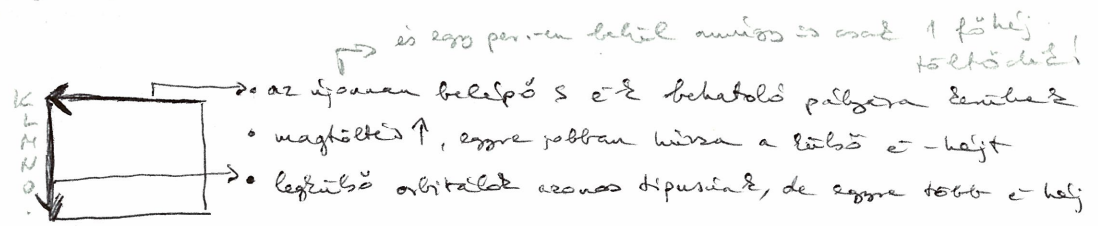 és egy per.-en belül amúgy is csak 1 főhéj
töltődik!
• az újonnan belépő s e⁻k behatoló pályára kerülnek
• magtöltés ↑, egyre jobban húzza a külső e⁻-héjt
• legkülső orbitálok azonos típusúak, de egyre több e⁻héj
K L M N O . .